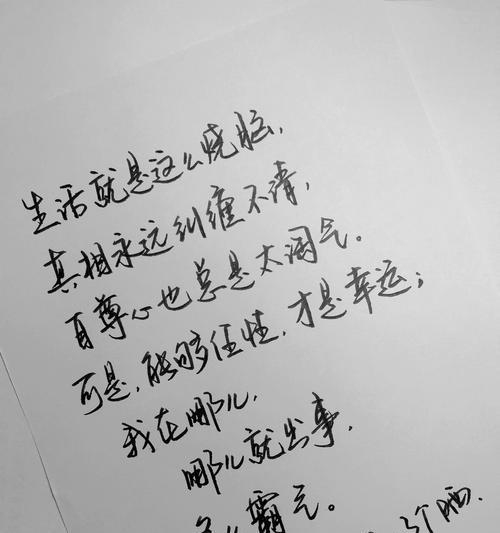 生活就是这么烧脑,
真相永远纠缠不清,
自尊心也总是太淘气。
可是,能够任性,才是幸运;
我在哪儿,
哪儿就出事,
多么霸气。
个晒.